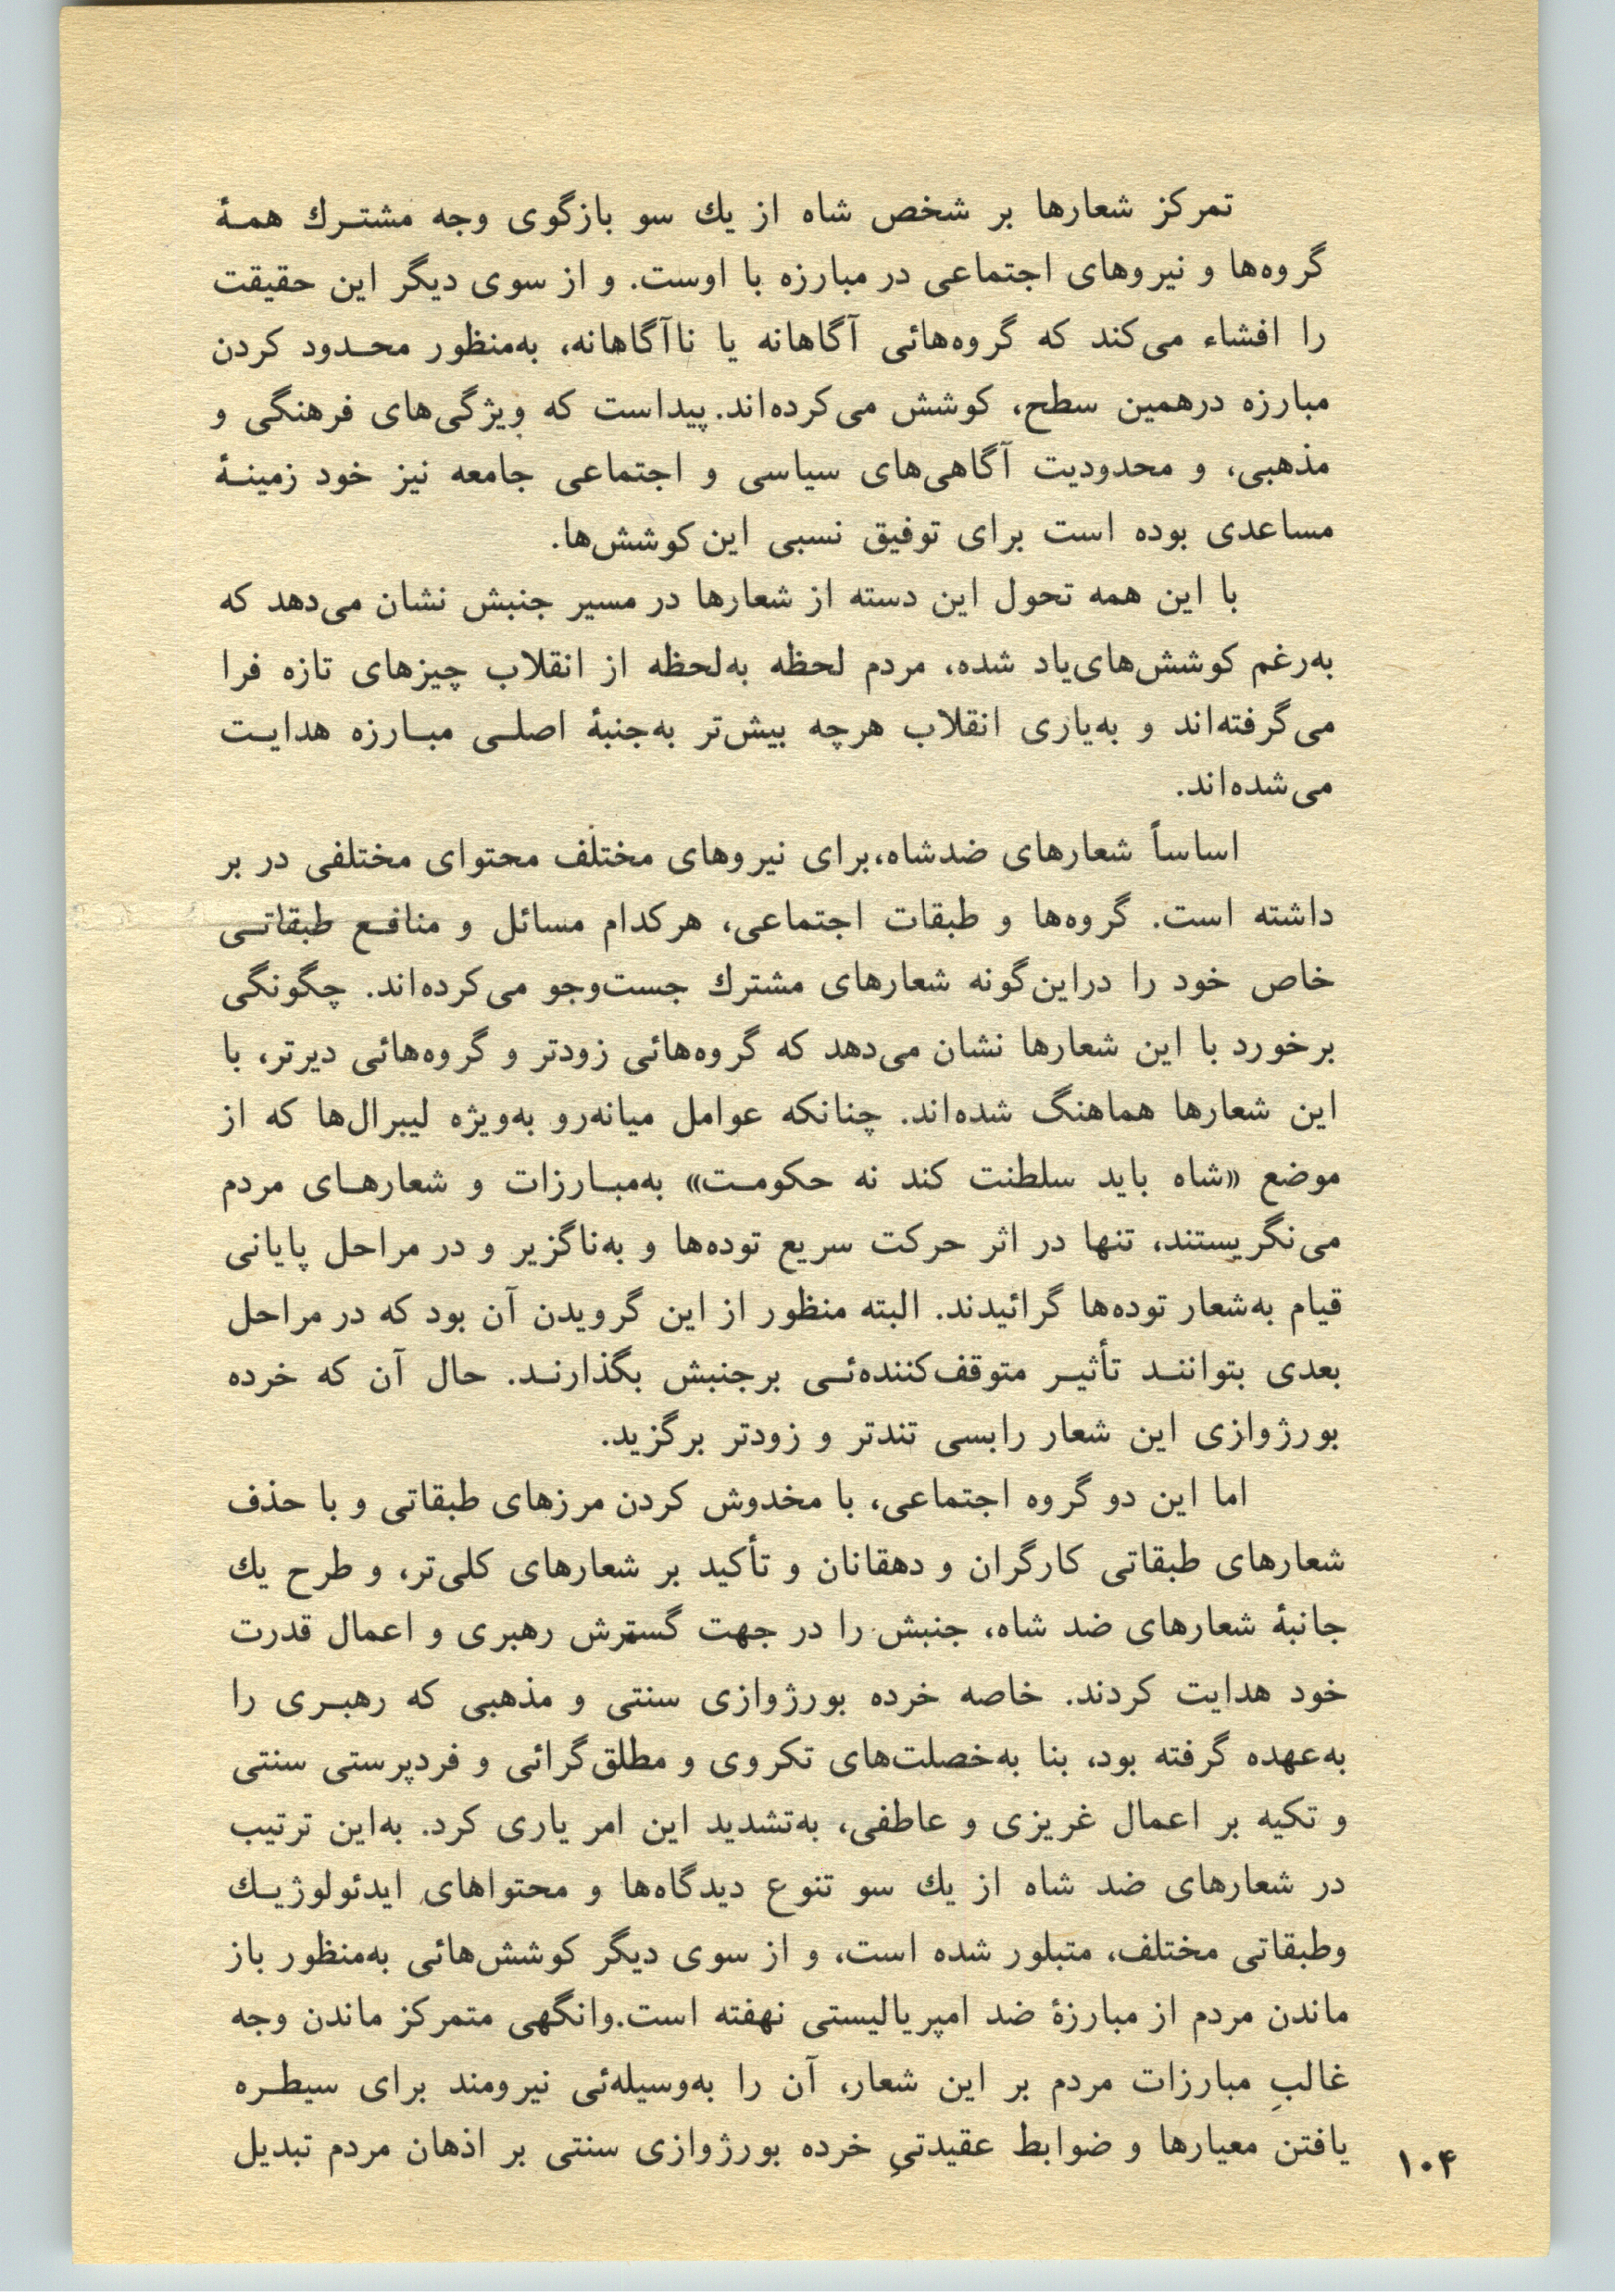 تمرکز شعارها بر شخص شاه از یك سو بازگوی وجه مشتـرك همـهٔ
گروه‌ها و نیروهای اجتماعی در مبارزه با اوست. و از سوی دیگر این حقیقت
را افشاء می‌کند که گروه‌هائی آگاهانه یا ناآگاهانه، به‌منظور محـدود کردن
مبارزه درهمین سطح، کوشش می‌کرده‌اند. پیداست که ویژگی‌های فرهنگی و
مذهبی، و محدودیت آگاهی‌های سیاسی و اجتماعی جامعه نیز خود زمینـهٔ
مساعدی بوده است برای توفیق نسبی این کوشش‌ها.
با این همه تحول این دسته از شعارها در مسیر جنبش نشان می‌دهد که
به‌رغم کوشش‌های‌یاد شده، مردم لحظه به‌لحظه از انقلاب چیزهای تازه فرا
می‌گرفته‌اند و به‌یاری انقلاب هرچه بیش‌تر به‌جنبهٔ اصلـی مبـارزه هدایـت
می‌شده‌اند.
اساساً شعارهای ضدشاه،برای نیروهای مختلف محتوای مختلفی در بر
داشته است. گروه‌ها و طبقات اجتماعی، هرکدام مسائل و منافـع طبقاتـی
خاص خود را دراین‌گونه شعارهای مشترك جست‌وجو می‌کرده‌اند. چگونگی
برخورد با این شعارها نشان می‌دهد که گروه‌هائی زودتر و گروه‌هائی دیرتر، با
این شعارها هماهنگ شده‌اند. چنانکه عوامل میانه‌رو به‌ویژه لیبرال‌ها که از
موضع «شاه باید سلطنت کند نه حکومـت» به‌مبـارزات و شعارهـای مردم
می‌نگریستند، تنها در اثر حرکت سریع توده‌ها و به‌ناگزیر و در مراحل پایانی
قیام به‌شعار توده‌ها گرائیدند. البته منظور از این گرویدن آن بود که در مراحل
بعدی بتواننـد تأثیـر متوقف‌کننده‌ئـی برجنبش بگذارنـد. حال آن که خرده
بورژوازی این شعار رابسی تندتر و زودتر برگزید.
اما این دو گروه اجتماعی، با مخدوش کردن مرزهای طبقاتی و با حذف
شعارهای طبقاتی کارگران و دهقانان و تأکید بر شعارهای کلی‌تر، و طرح یك
جانبهٔ شعارهای ضد شاه، جنبش را در جهت گسترش رهبری و اعمال قدرت
خود هدایت کردند. خاصه خرده بورژوازی سنتی و مذهبی که رهبـری را
به‌عهده گرفته بود، بنا به‌خصلت‌های تکروی و مطلق‌گرائی و فردپرستی سنتی
و تکیه بر اعمال غریزی و عاطفی، به‌تشدید این امر یاری کرد. به‌این ترتیب
در شعارهای ضد شاه از یك سو تنوع دیدگاه‌ها و محتواهای ایدئولوژیـك
وطبقاتی مختلف، متبلور شده است، و از سوی دیگر کوشش‌هائی به‌منظور باز
ماندن مردم از مبارزهٔ ضد امپریالیستی نهفته است.وانگهی متمرکز ماندن وجه
غالبِ مبارزات مردم بر این شعار، آن را به‌وسیله‌ئی نیرومند برای سیطـره
یافتن معیارها و ضوابط عقیدتیِ خرده بورژوازی سنتی بر اذهان مردم تبدیل
۱۰۴